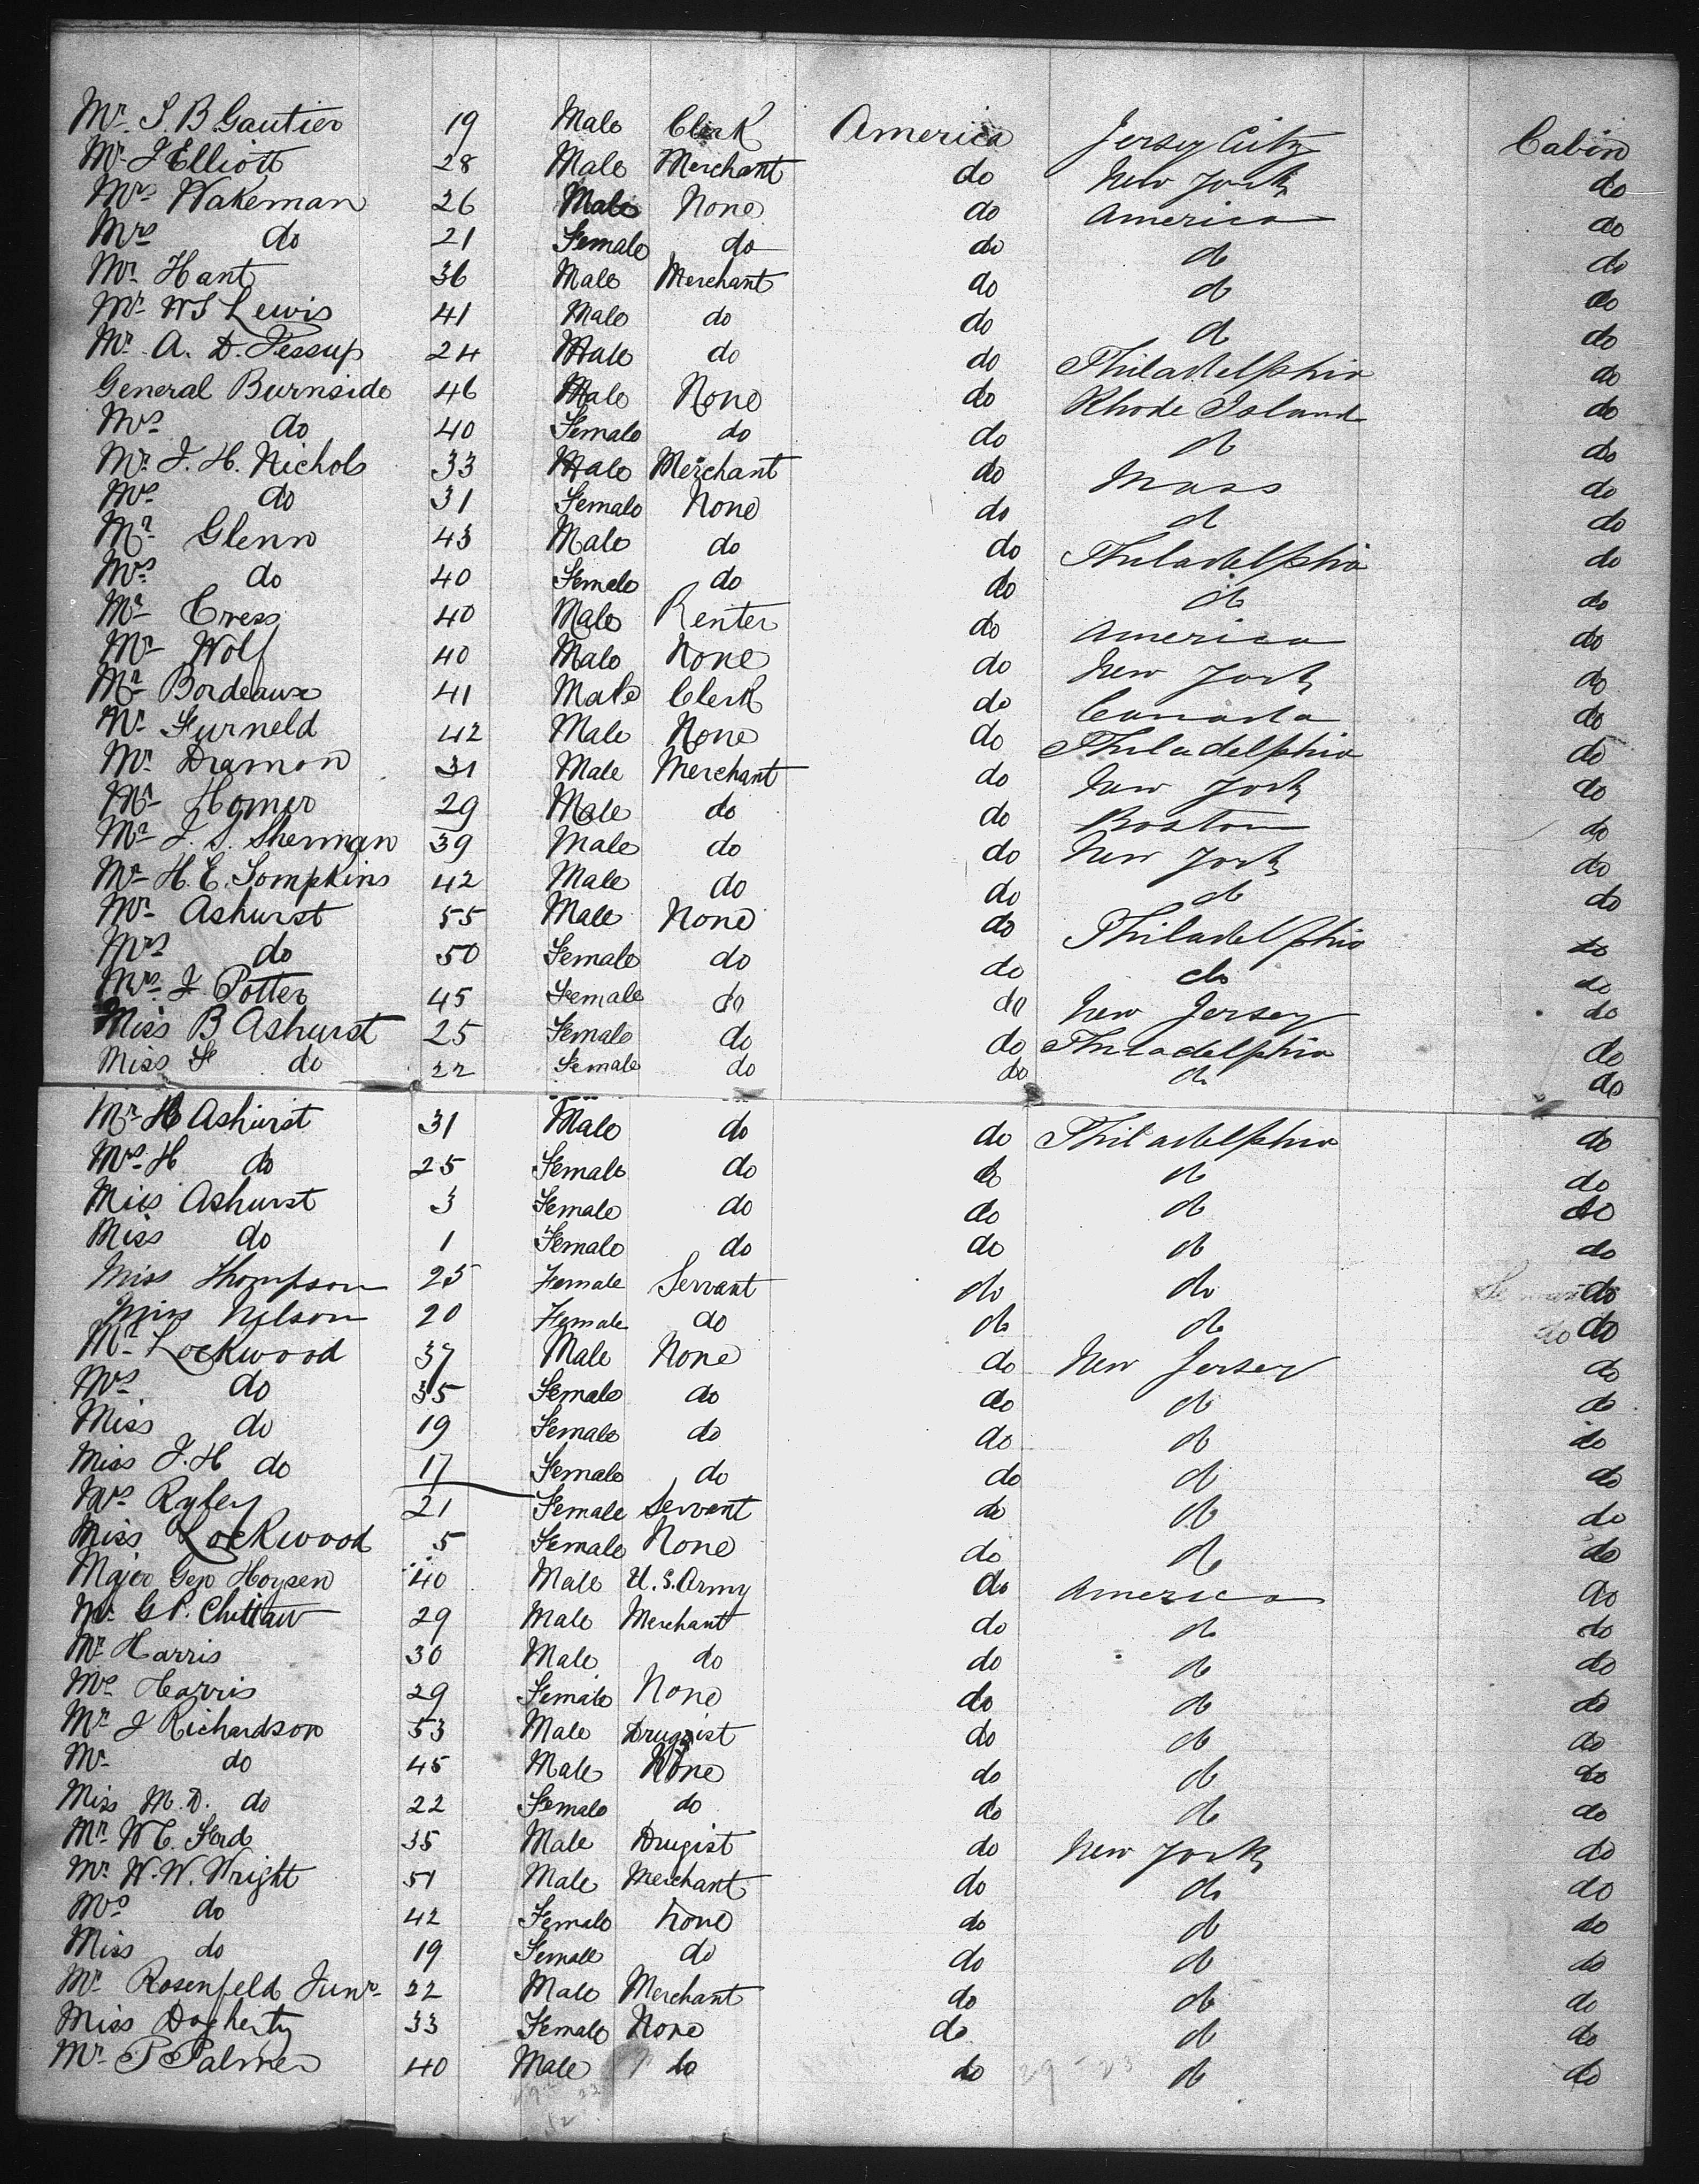 Mr. S. B. Gautier 19 Male Clerk America Jersey City Cabin
Mr J Elliott 28 Male Merchant do New York do
Mr Wakeman 26 Male None do America do
Mrs do 21 Female do do do do
Mr Hant 36 Male Merchant do do do
Mr WS Lewis 41 Male do do do do
Mr A. D. Jessup 24 Male do do Philadelphia do
General Burnside 46 Male None do Rhode Island do
Mrs do 40 Female do do do do
Mr J. H. Nichols 33 Male Merchant do Mass do
Mrs do 31 Female None do do do
Mr Glenn 43 Male do do Philadelphia do
Mrs do 40 Female do do do do
Mr Cress 40 Male Renter do America do
Mr Wolf 40 Male None do New York do
Mr Bordeaux 41 Male Clerk do Canada do
Mr Furneld 42 Male None do Philadelphia do
Mr Dramon 31 Male Merchant do New York do
Mr Homer 29 Male do do Boston do
Mr J. S. Sherman 39 Male do do New York do
Mr H. E. Tompkins 42 Male do do do do
Mr Ashurst 55 Male None do Philadelphia do
Mrs do 50 Female do do do do
Mrs J Potter 45 Female do do New Jersey do
Miss B Ashurst 25 Female do do Philadelphia do
Miss F do 22 Female do do do do
Mr H Ashurst 31 Male do do Philadelphia do
Mrs H do 25 Female do do do do
Miss Ashurst 3 Female do do do do
Miss do 1 Female do do do do
Miss Thompson 25 Female Servant do do do
Miss Nelson 20 Female do do do do do
Mr Lockwood 37 Male None do New Jersey do
Mrs do 35 Female do do do do
Miss do 19 Female do do do do
Miss J. H do 17 Female do do do do
Mrs Ryley 21 Female Servent do do do
Miss Lockwood 5 Female None do do do
Major Gen Hoysen 40 Male U.S. Army do America do
Mr G P. Chittaw 29 Male Merchant do do do
Mr Harris 30 Male do do do do
Mrs Harris 29 Female None do do do
Mr J Richardson 53 Male Drugist do do do
Mr do 45 Male None do do do
Miss M. D. do 22 Female do do do do
Mr W C. Ford 35 Male Drugist do New York do
Mr W. W. Wright 51 Male Merchant do do do
Mrs do 42 Female None do do do
Miss do 19 Female do do do do
Mr Rosenfeld Junr 22 Male Merchant do do do
Miss Dogherty 33 Female None do do do
Mr P Palmer 40 Male do do 29 - 23 do do